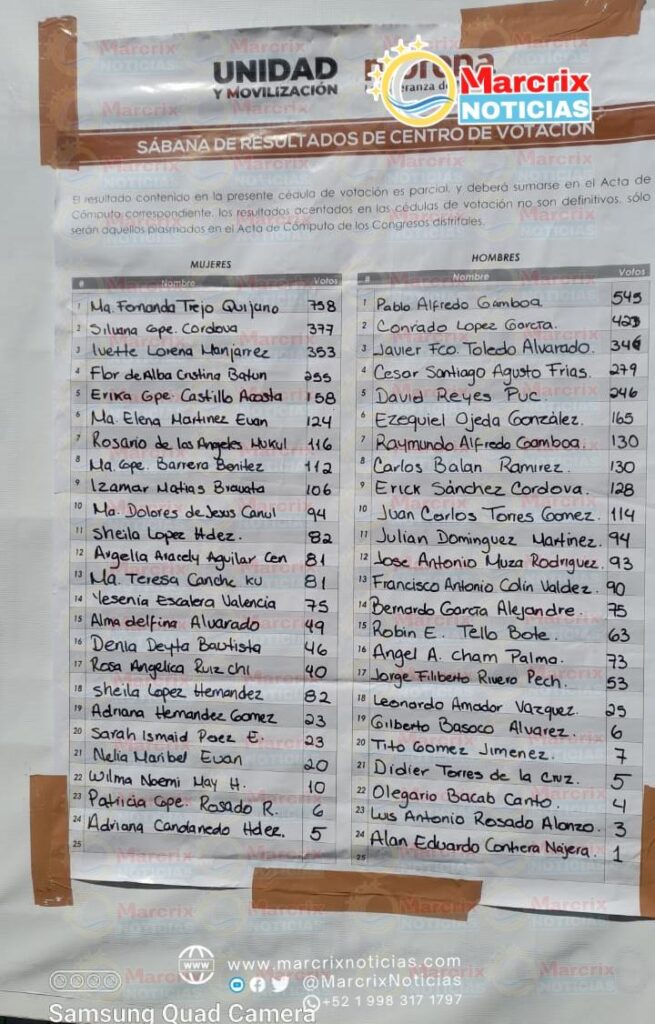 UNIDAD
Y MOVILIZACIÓN
morena
Marcrix
NOTICIAS
SÁBANA DE RESULTADOS DE CENTRO DE VOTACIÓN
El resultado contenido en la presente cédula de votación es parcial, y deberá sumarse en el Acta de
Cómputo correspondiente, los resultados acentados en las cédulas de votación no son definitivos, sólo
serán aquellos plasmados en el Acta de Cómputo de los Congresos distritales.
MUJERES
# Nombre Votos
1 Ma. Fernanda Trejo Quijano 758
2 Silvana Gpe. Cordova 377
3 Ivette Lorena Manjarrez 353
4 Flor de Alba Cristina Batun 255
5 Erika Gpe Castillo Acosta 158
6 Ma. Elena Martinez Euan 124
7 Rosario de los Angeles Mukul 116
8 Ma. Gpe. Barrera Benitez 112
9 Izamar Matias Bravata 106
10 Ma. Dolores de Jesus Canul 94
11 Sheila Lopez Hdez. 82
12 Argelia Aracely Aguilar Cen 81
13 Ma. Teresa Canche Ku 81
14 Yesenia Escalera Valencia 75
15 Alma delfina Alvarado 49
16 Denia Deyta Bautista 46
17 Rosa Angelica Ruiz Chi 40
18 Sheila Lopez Hernandez 82
19 Adriana Hernandez Gomez 23
20 Sarah Ismaid Perez E. 23
21 Nelia Maribel Euan 20
22 Wilma Noemi May H. 10
23 Patricia Gpe. Rosado R. 6
24 Adriana Candanedo Hdez. 5
25
HOMBRES
# Nombre Votos
1 Pablo Alfredo Gamboa 545
2 Conrado Lopez Garcia. 423
3 Javier Fco. Toledo Alvarado. 346
4 Cesar Santiago Agusto Frias. 279
5 David Reyes Puc. 246
6 Ezequiel Ojeda González. 165
7 Raymundo Alfredo Gamboa. 130
8 Carlos Balan Ramirez. 130
9 Erick Sánchez Cordova. 128
10 Juan Carlos Torres Gomez. 114
11 Julian Dominguez Martinez. 94
12 Jose Antonio Muza Rodriguez. 93
13 Francisco Antonio Colín Valdez. 90
14 Bernardo Garcia Alejandre. 75
15 Robin E. Tello Bote. 63
16 Angel A. Cham Palma. 73
17 Jorge Filiberto Rivero Pech. 53
18 Leonardo Amador Vazquez. 25
19 Gilberto Basoco Alvarez. 6
20 Tito Gomez Jimenez. 7
21 Didier Torres de la Cruz. 5
22 Olegario Bacab Canto. 4
23 Luis Antonio Rosado Alonzo. 3
24 Alan Eduardo Contrera Najera. 1
25
www.marcrixnoticias.com
@MarcrixNoticias
+52 1 998 317 1797
Samsung Quad Camera